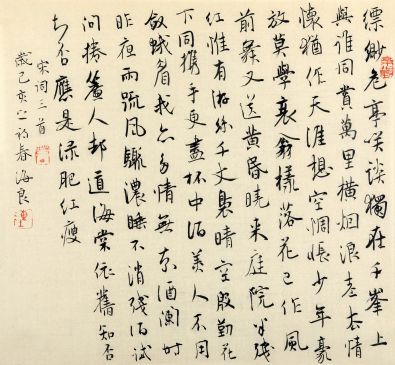 缥缈危亭笑谈獨在千峯上
與谁同賞萬里横烟浪老去情
懷猶作天涯想空惆悵少年豪
放莫學衰翁樣落花已作風
前舞又送黄昏曉来庭院半残
红惟有游丝千丈裊晴空殷勤花
下同攜手更盡杯中酒美人不用
敛蛾眉我亦多情無奈酒闌时
昨夜雨疏风骤濃睡不消残酒试
问捲簾人却道海棠依舊知否
知否應是绿肥红瘦
宋词三首
歲己亥之初春海良